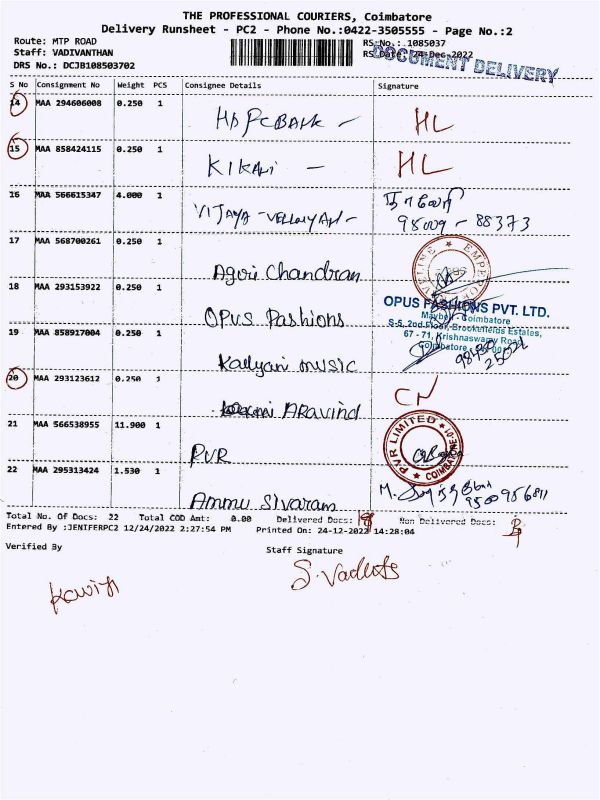 THE PROFESSIONAL COURIERS, Coimbatore
Delivery Runsheet - PC2 - Phone No.:0422-3505555 - Page No.:2
Route: MTP ROAD
RS No.: 1085037
Staff: VADIVANTHAN
RS Date: 24-Dec-2022
DRS No.: DCJB108503702
DOCUMENT DELIVERY
S No Consignment No Weight PCS Consignee Details Signature
14 MAA 294606008 0.250 1 HDFC BANK - HL
15 MAA 858424115 0.250 1 KIKANI - HL
16 MAA 566615347 4.000 1 VIJAYA -VELLAIYAN-
98009 - 88373
17 MAA 568700261 0.250 1 Agori Chandran
18 MAA 293153922 0.250 1 OPUS Pashions
OPUS FASHIONS PVT. LTD.
Coimbatore
S-5, 2nd Floor, Brookefields Estates,
67 - 71, Krishnaswamy Road
Coimbatore
19 MAA 858917004 0.250 1 Kallyari music
20 MAA 293123612 0.250 1 ARavind
21 MAA 566538955 11.900 1 PVR
PVR LIMITED
COIMBATORE
22 MAA 295313424 1.530 1 Ammu Sivaram
9500956811
Total No. Of Docs: 22 Total COD Amt: 0.00 Delivered Docs: Non Delivered Docs:
Entered By :JENIFERPC2 12/24/2022 2:27:54 PM Printed On: 24-12-2022 14:28:04
Verified By
Staff Signature